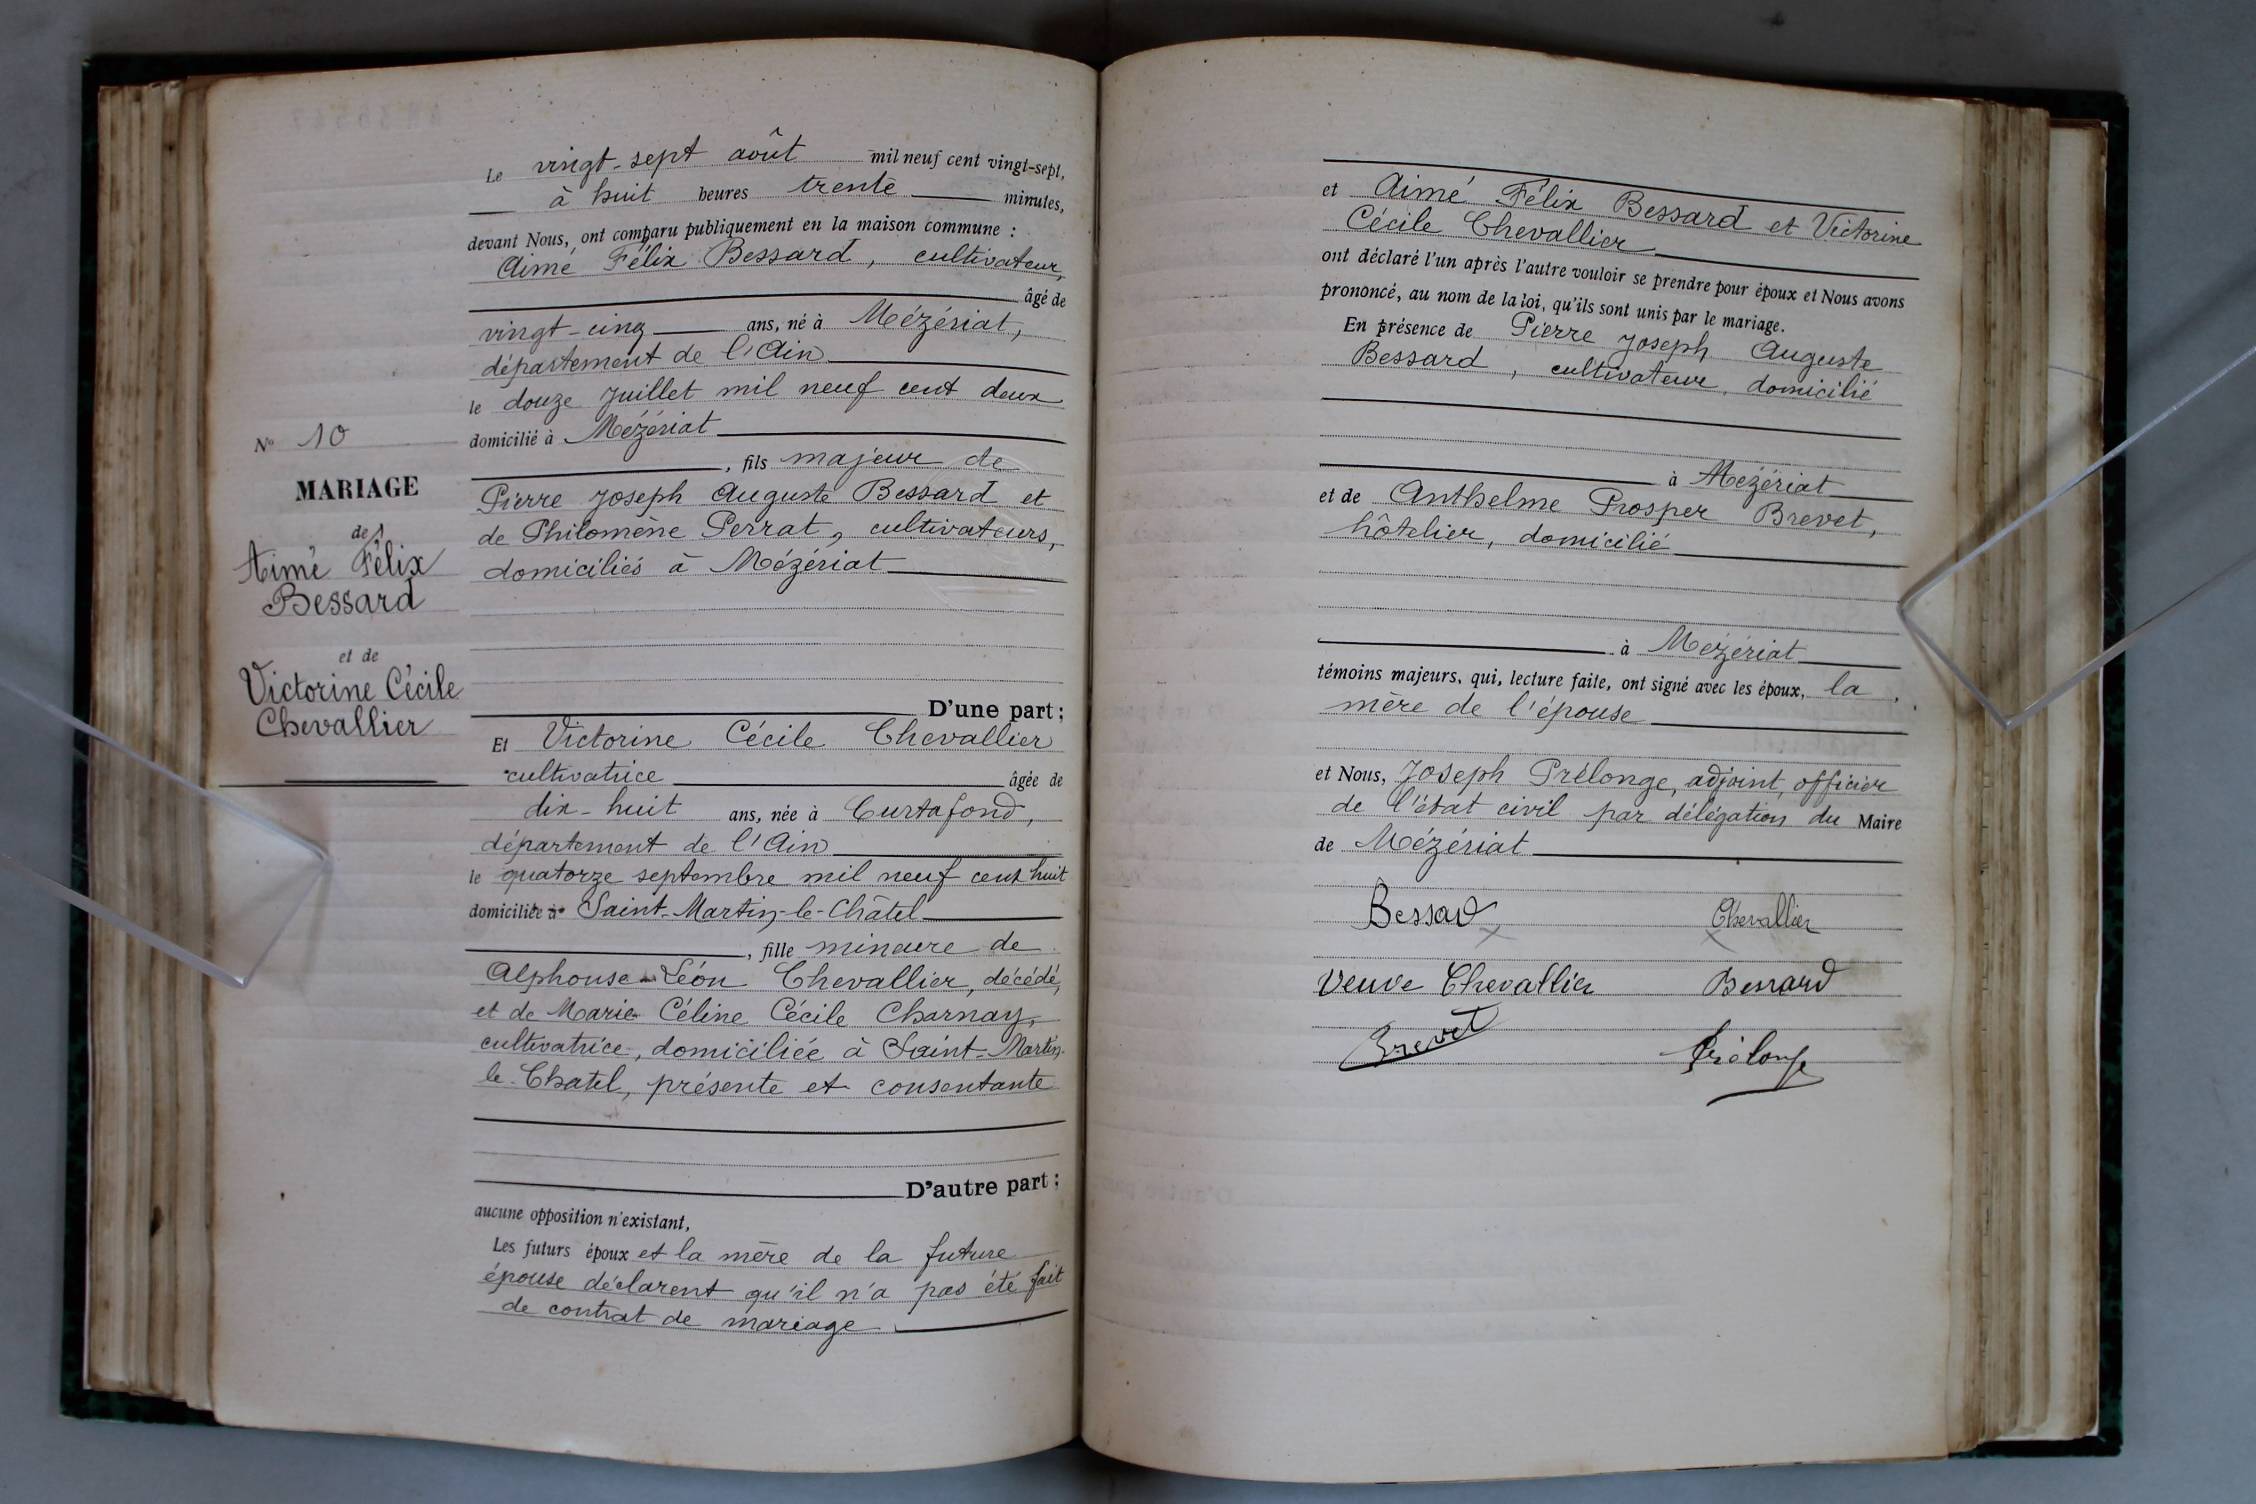 Le vingt-sept août mil neuf cent vingt-sept,
à huit heures trente minutes,
devant Nous, ont comparu publiquement en la maison commune :
Aimé Félix Bessard, cultivateur,
âgé de
vingt-cinq ans, né à Mézériat,
département de l'Ain
le douze juillet mil neuf cent deux
domicilié à Mézériat
, fils majeur de
Pierre Joseph Auguste Bessard et
de Philomène Perrat, cultivateurs,
domiciliés à Mézériat
D'une part ;
Nº 10
MARIAGE
de
Aimé Félix
Bessard
et de
Victorine Cécile
Chevallier
Et Victorine Cécile Chevallier
cultivatrice âgée de
dix-huit ans, née à Curtafond,
département de l'Ain
le quatorze septembre mil neuf cent huit
domiciliée à Saint-Martin-le-Châtel
, fille mineure de
Alphonse-Léon Chevallier, décédé,
et de Marie-Céline Cécile Charnay,
cultivatrice, domiciliée à Saint-Martin-
le-Chatel, présente et consentante
D'autre part ;
aucune opposition n'existant,
Les futurs époux et la mère de la future
épouse déclarent qu'il n'a pas été fait
de contrat de mariage
et Aimé Félix Bessard et Victorine
Cécile Chevallier
ont déclaré l'un après l'autre vouloir se prendre pour époux et Nous avons
prononcé, au nom de la loi, qu'ils sont unis par le mariage.
En présence de Pierre Joseph Auguste
Bessard, cultivateur, domicilié
à Mézériat
et de Anthelme Prosper Brevet,
hôtelier, domicilié
à Mézériat
témoins majeurs, qui, lecture faite, ont signé avec les époux, la
mère de l'épouse
et Nous, Joseph Prélonge, adjoint, officier
de l'état civil par délégation du Maire
de Mézériat
Bessard Chevallier
Veuve Chevallier Bessard
Brevet Prélonge